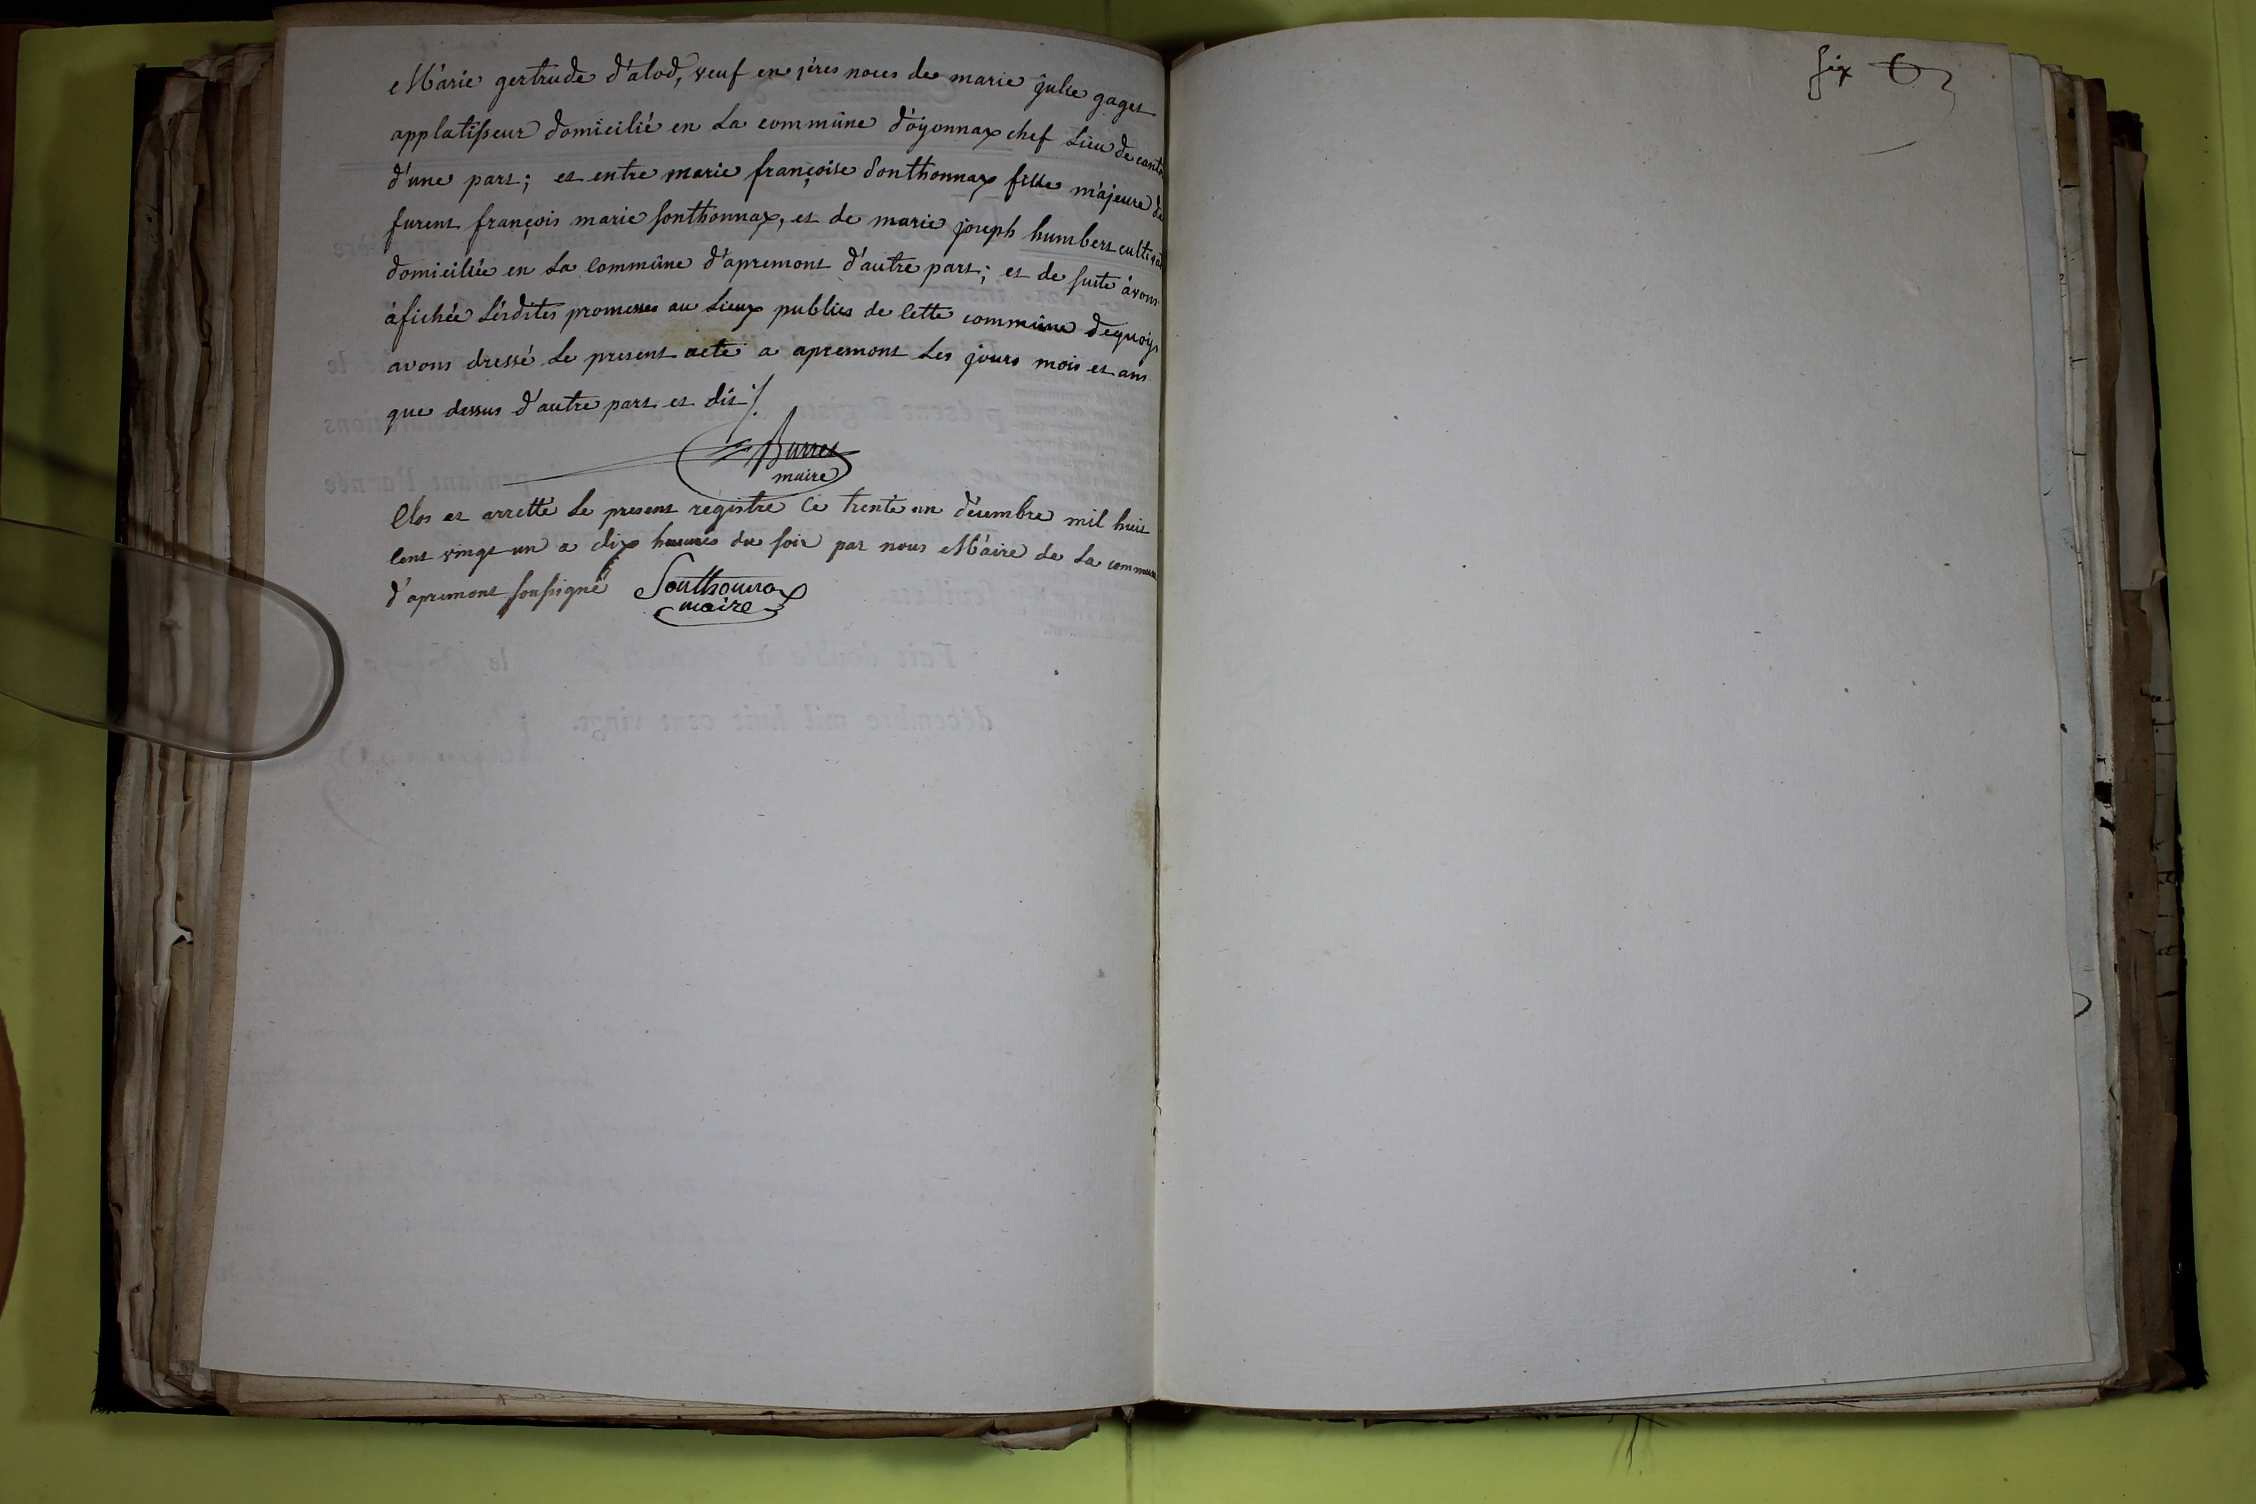 Marie gertrude d'alod, veuf en 1ères noces de marie julie gaget
applatisseur domicilié en La commûne d'oyonnax chef Lieu de canton
d'une part; et entre marie françoise Sonthonnax fille majeure de
furent françois marie Sonthonnax, et de marie joseph humbert cultiva
domiciliée en La Commûne d'apremont d'autre part; et de suite avons
afichée Lésdites promesses au Lieux publics de Cette commûne dequoy
avons dressé Le present acte a apremont Les jours mois et ans
que dessus d'autre part et dit ./.
Burret
maire
Clos et arretté Le present régistre Ce trente un décembre mil huit
Cent vingt un a dix heures du soir par nous Maire de La commune
d'apremont soussigné Sonthonnax
maire
six 6
Fait double à le
décembre mil huit cent vingt.